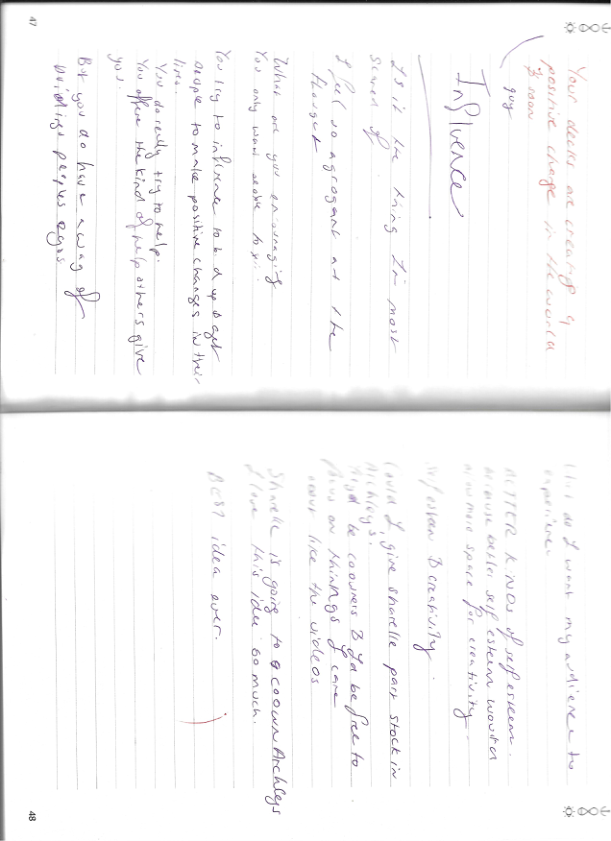 47
Your decks are creating a
positive change in the world
& soon
guy
Influence
Is it the thing I'm most
scared of
I feel so arrogant at the
thought
What are you encouraging
You only want people to
You try to influence to
people to make positive changes in their
lives.
You do really try to help.
You offer the kind of help others give
you.
But you do have a way of
peoples egos
48
do I want my audience to
experience.
BETTER kinds of self esteem.
because better self esteem would
more space for creativity.
self esteem & creativity.
Could I give Sharelle part stock in
Archleys.
be coowners & I'd be free to
focus on things I care
about like the videos
Sharelle is going to coown Archleys
I love this idea so much.
BEST idea ever.